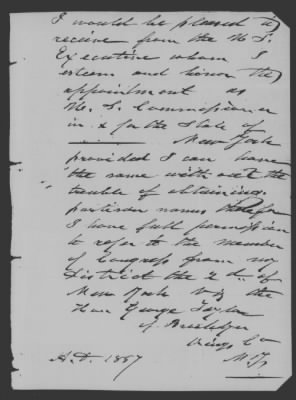 I would be pleased to
receive from the U.S.
Executive whom I
esteem and honor the
appointment as
U. S. Commissioner
in & for the State of
New York
provided I can have
the same without the
trouble of obtaining
particular names
I have full permission
to refer to the member
of Congress from my
District the 2d of
New York viz the
Hon George Taylor
of Brooklyn
Kings Co
A.D. 1857 N.Y.